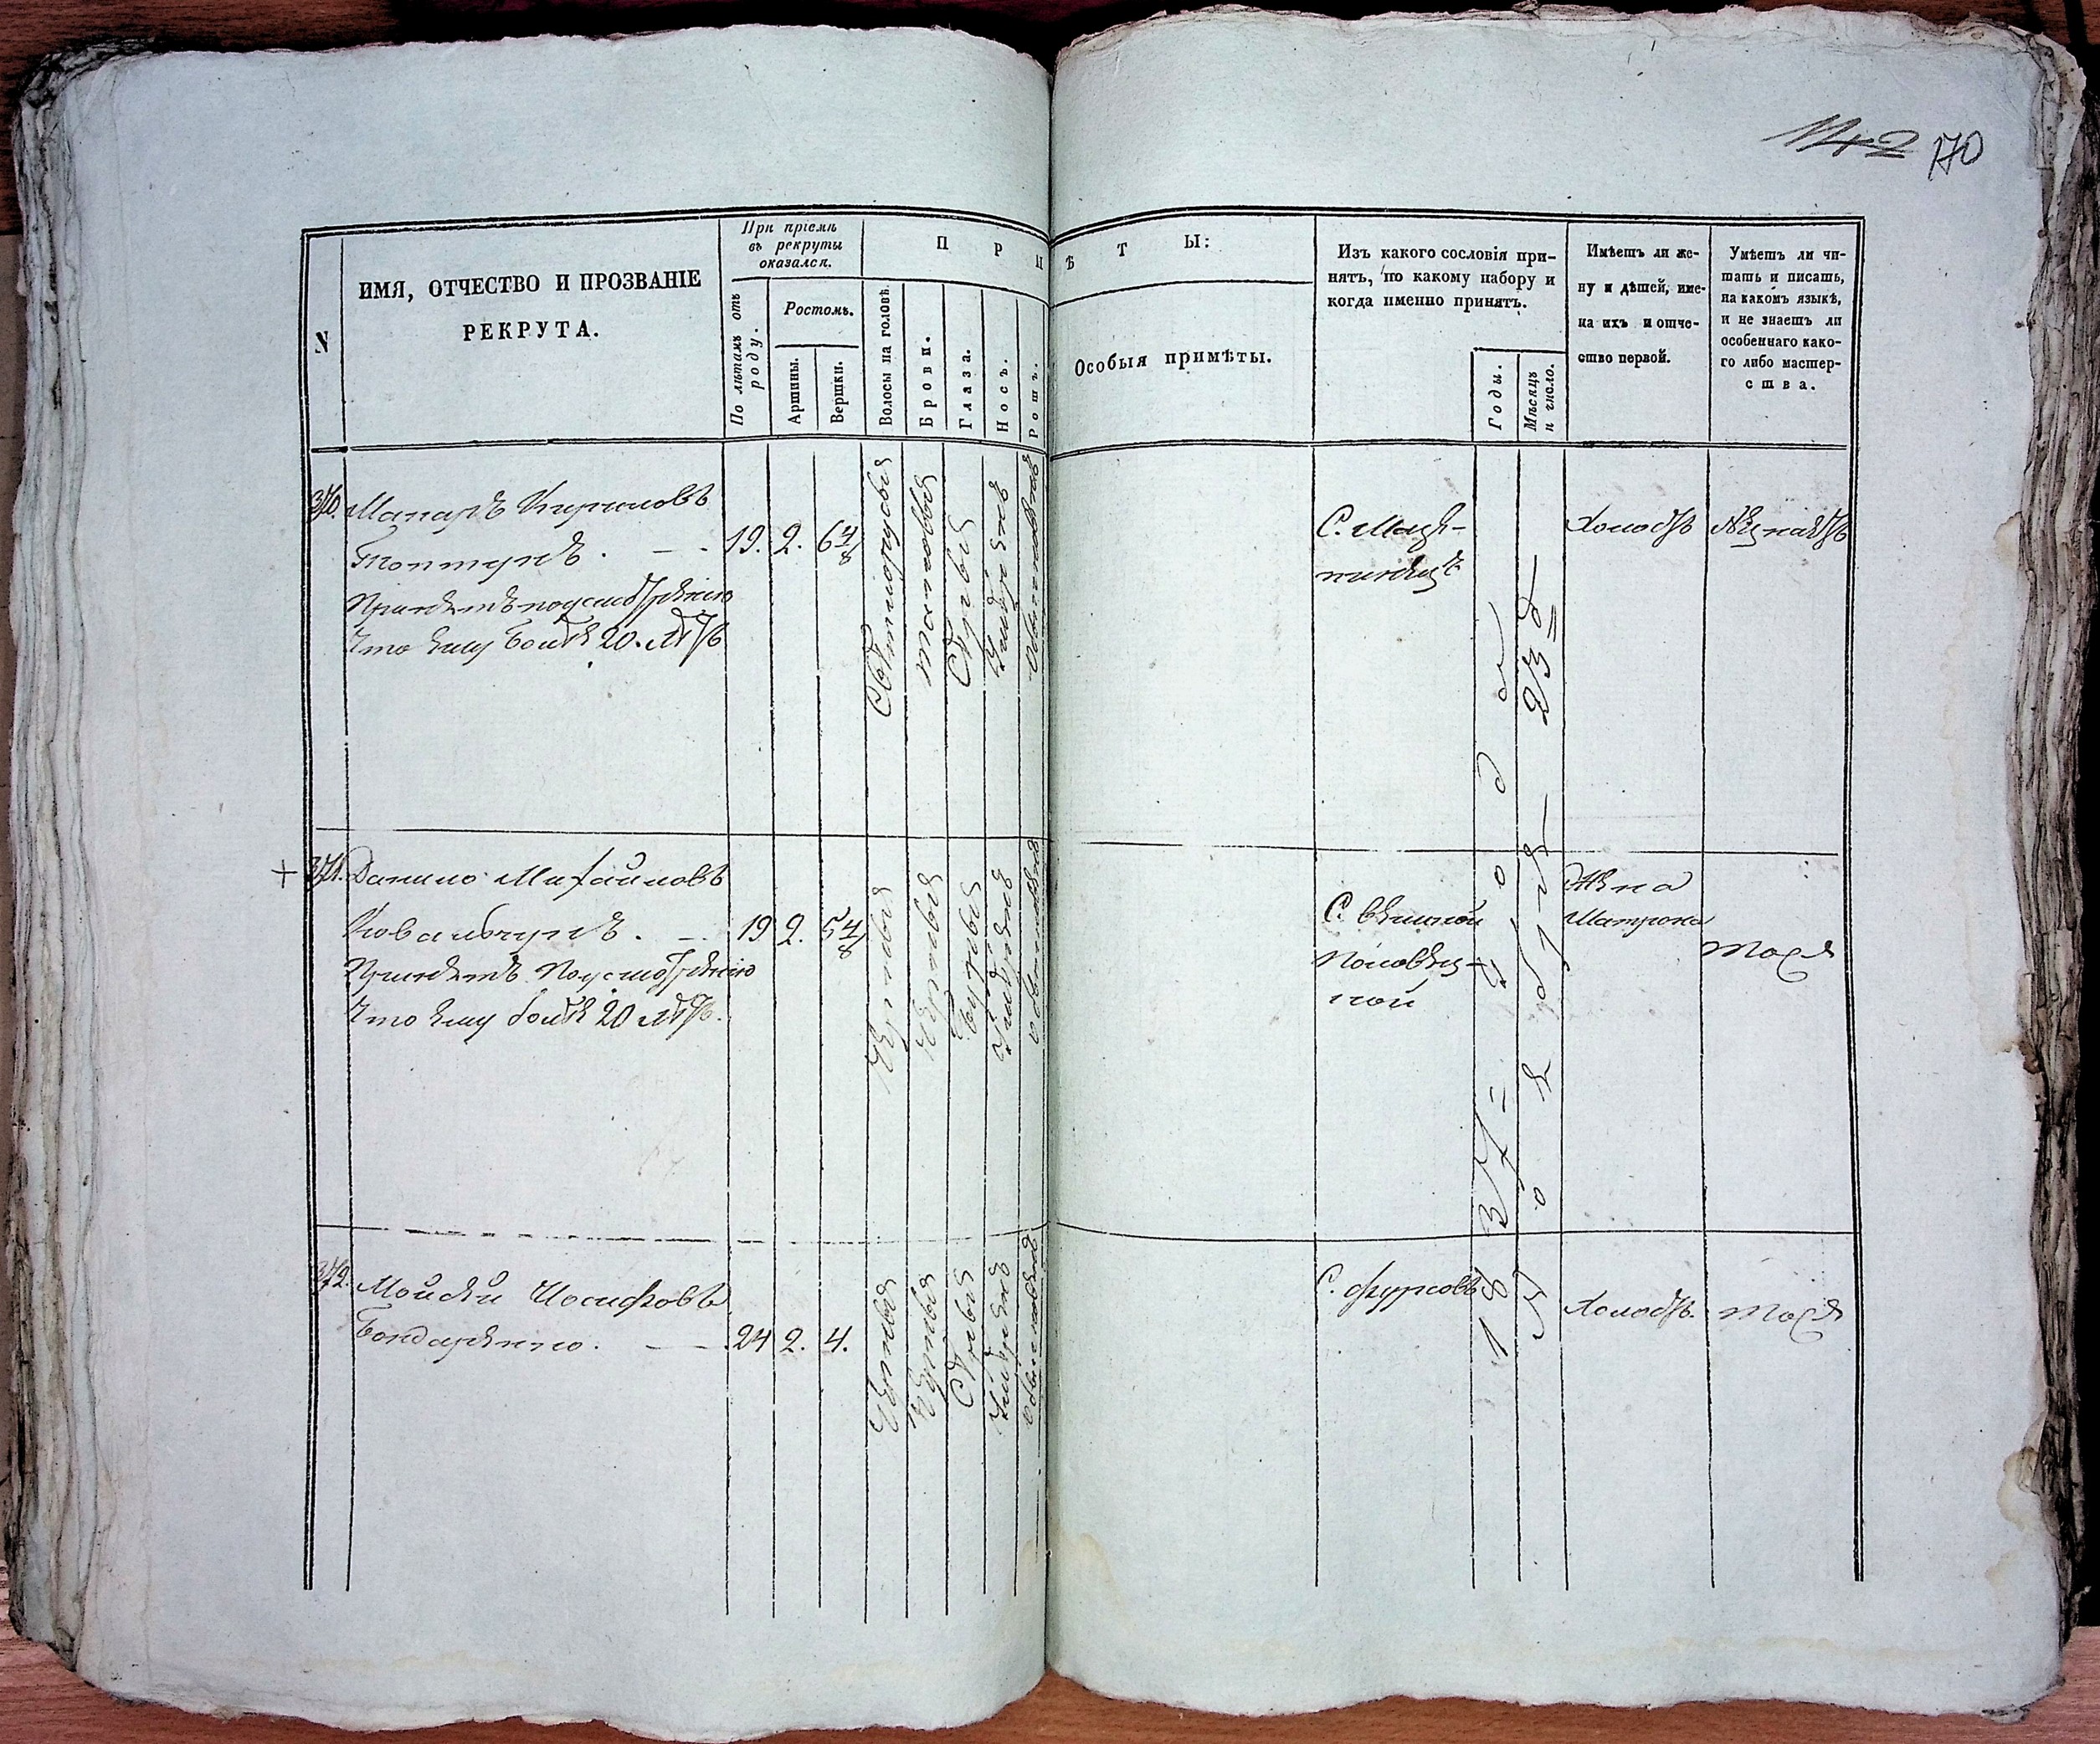 142 170
N
ИМЯ, ОТЧЕСТВО И ПРОЗВАНІЕ
РЕКРУТА.
При пріемѣ
въ рекруты
оказался.
По лѣтамъ отъ
роду.
Ростомъ.
Аршины.
Вершки.
П Р И М Ѣ Т Ы:
Волосы на головѣ.
Брови.
Глаза.
Носъ.
Ротъ.
Особыя примѣты.
Изъ какого сословія при-
нятъ, по какому набору и
когда именно принятъ.
Годы.
Мѣсяцъ
и число.
Имѣетъ ли же-
ну и дѣтей, име-
на ихъ и отче-
ство первой.
Умѣетъ ли чи-
тать и писать,
на какомъ языкѣ,
и не знаетъ ли
особеннаго како-
го либо мастер-
ства.
370. Макаръ Кириловъ
Топтунъ. 19. 2. 6 4/8
Принятъ по усмотренію
что ему более 20. летъ
Светлорусыя
таковыя
Серыя
умереннъ
обыкновенъ
Холостъ
Незнаетъ
+ 371. Данило Михайловъ
Ковальчукъ. 19 2. 5 4/8
Принятъ по усмотренію
что ему более 20 летъ.
Черныя
Черныя
Серыя
умеренъ
обыкновенъ
С. великой
Половец-
кой
Жена
Матрона
тоже
372. Моисей Иосифовъ
Бондаренко. 24 2. 4.
Черныя
Черныя
Серыя
умеренъ
обыкновенъ
С. фурсовъ
Холостъ.
тоже
1837 = года
23